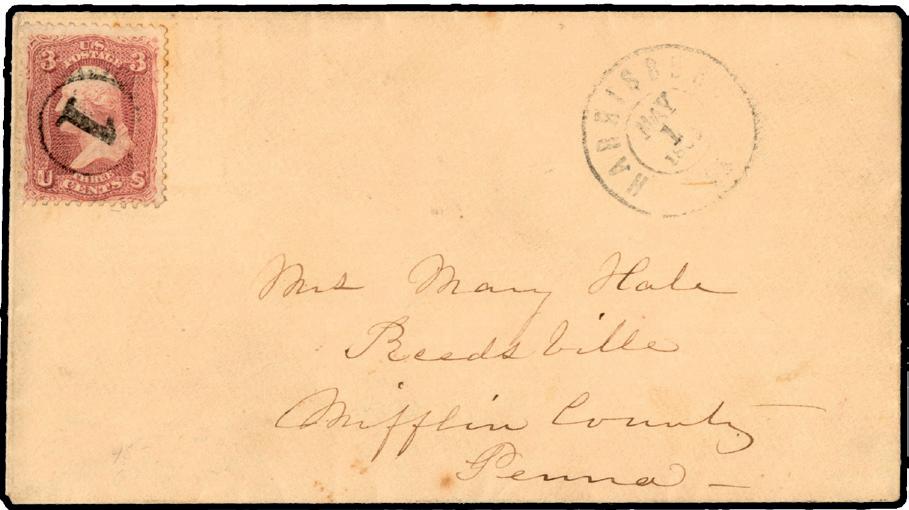 3 U.S. 3
POSTAGE
1
U THREE S
CENTS
HARRISBURG PA
MAY
1
Mrs Mary Hale
Reedsville
Mifflin County
Penna